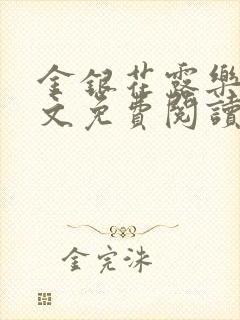 金銀花露樂
文免費閱讀
金完洙